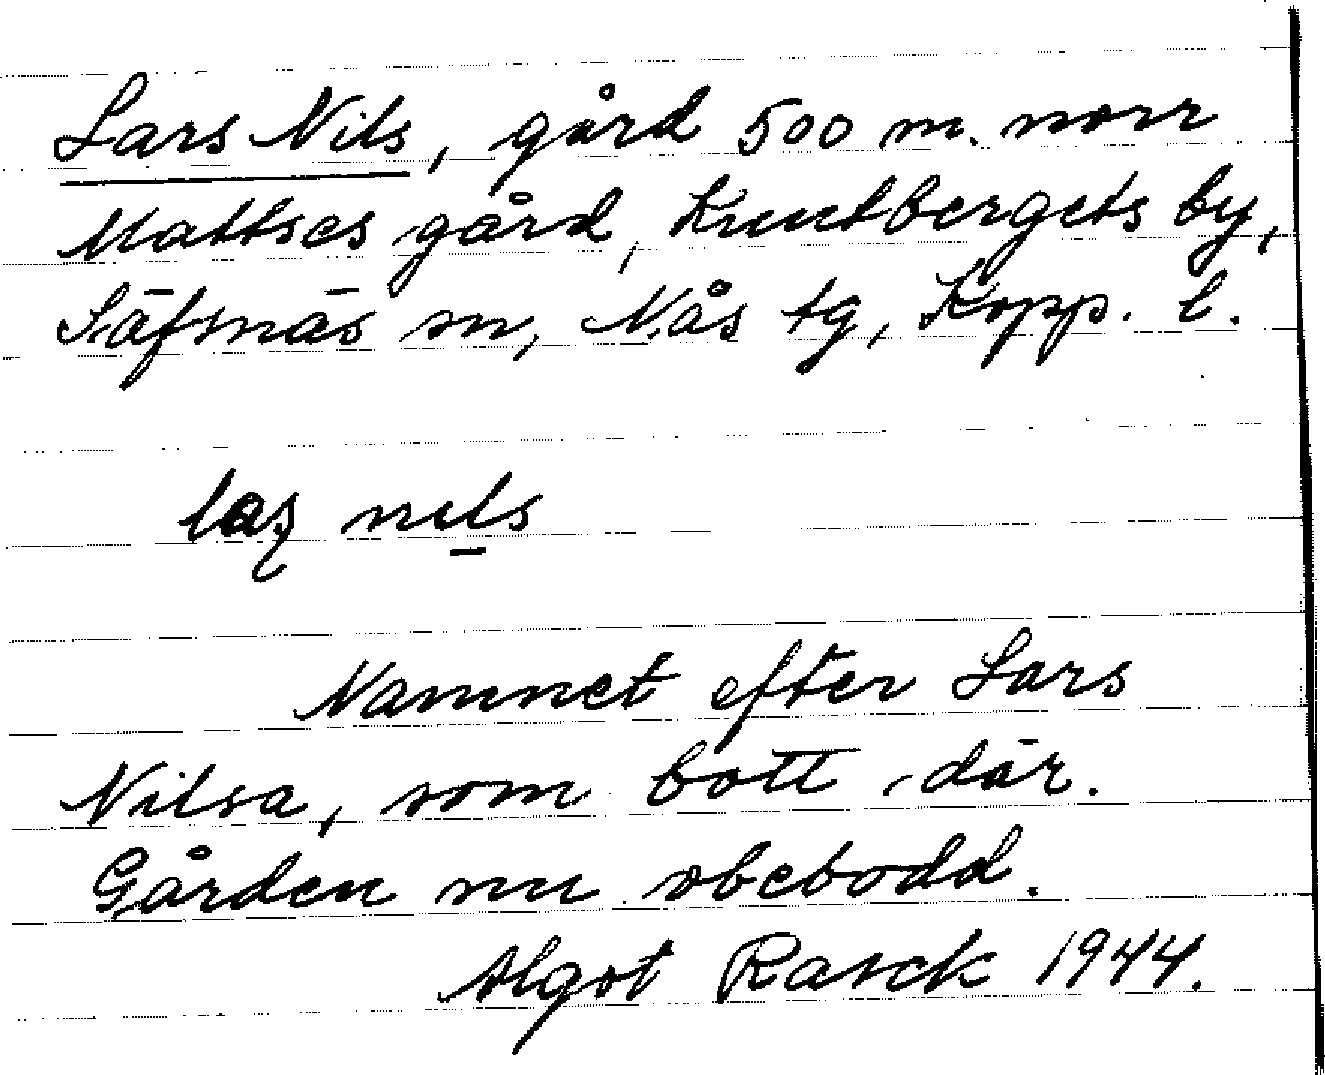 Lars Nils, gård 500 m. norr
Mattses gård, Knutbergets by,
Säfsnäs sn, Nås tg, Kopp. l.
laʂ nils
Namnet efter Lars
Nilsa, som bott där.
Gården nu obebodd.
Algot Rasck 1944.